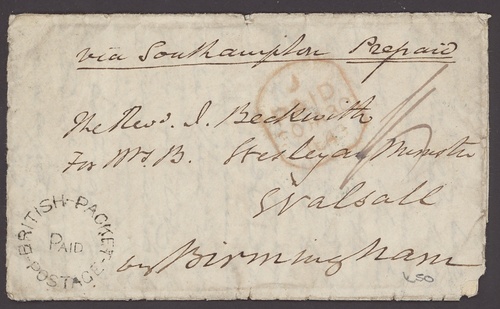 via Southampton Prepaid
PAID
The Revd. J. Beckwith
For Mrs. B. Wesleyan Minister
Walsall
by Birmingham
BRITISH PACKET
PAID
POSTAGE